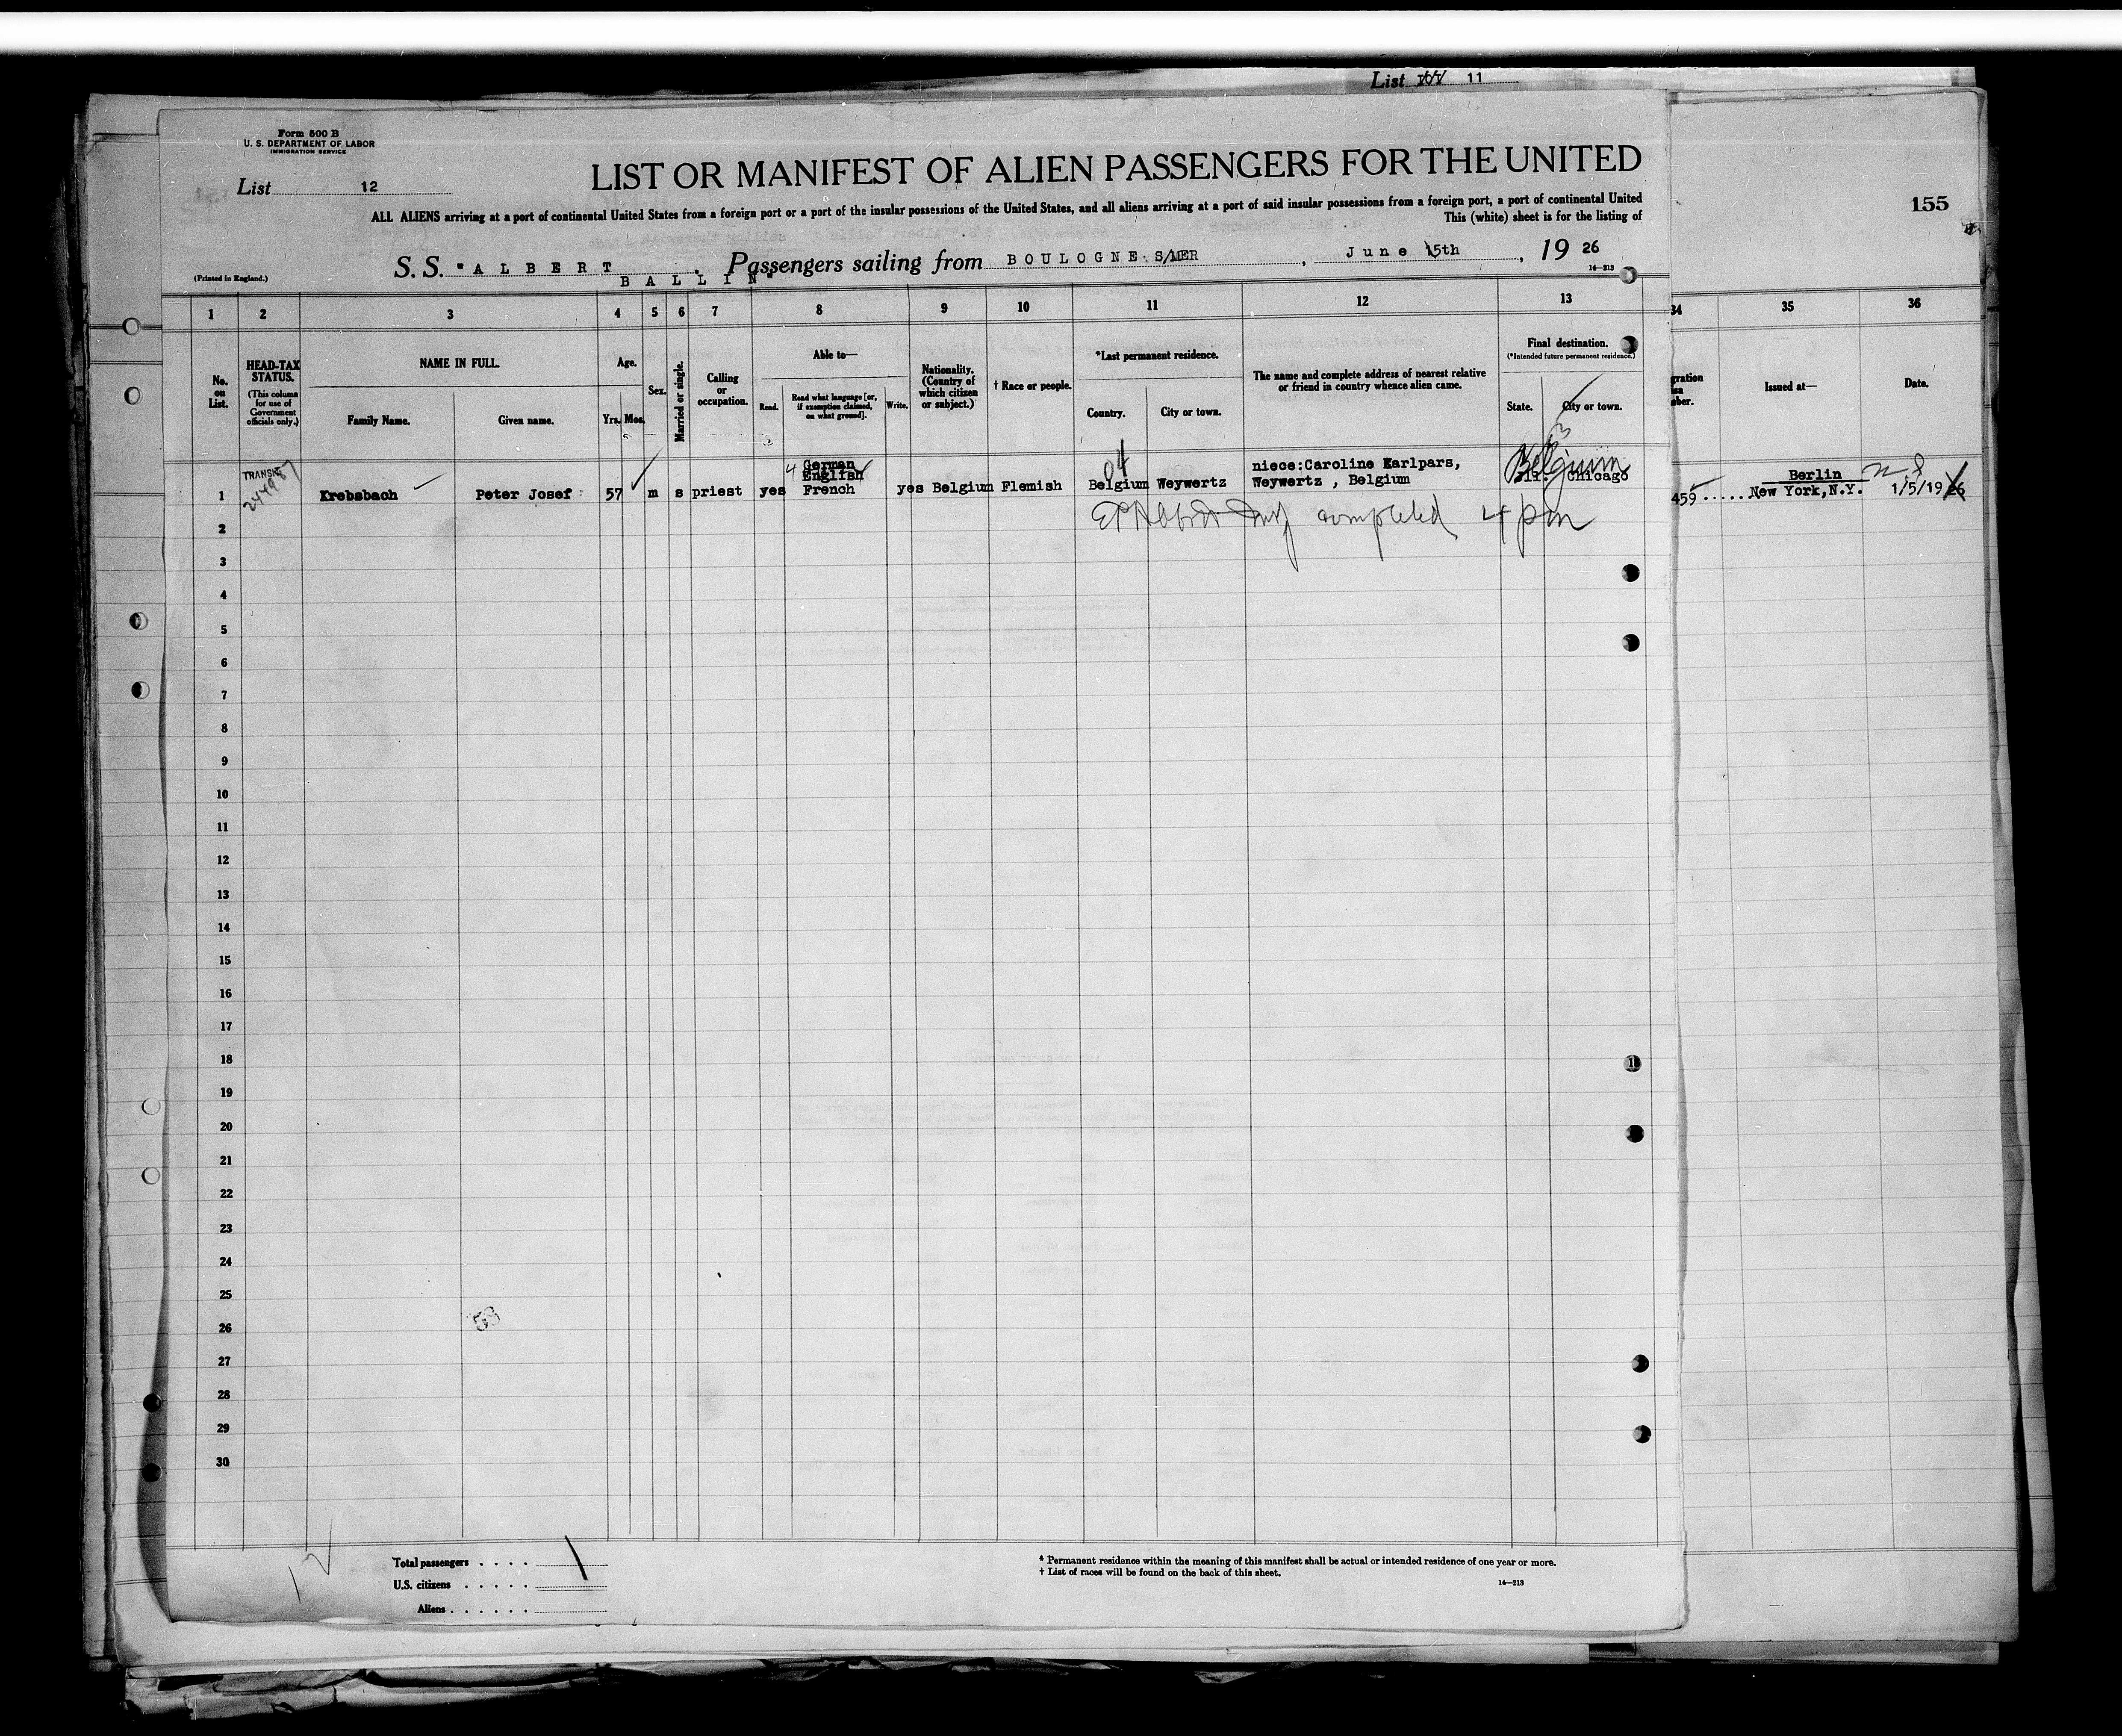 List 11
Form 500 B
U. S. DEPARTMENT OF LABOR
IMMIGRATION SERVICE
List 12
LIST OR MANIFEST OF ALIEN PASSENGERS FOR THE UNITED
ALL ALIENS arriving at a port of continental United States from a foreign port or a port of the insular possessions of the United States, and all aliens arriving at a port of said insular possessions from a foreign port, a port of continental United
This (white) sheet is for the listing of
155
(Printed in England.)
S. S. "ALBERT BALLIN" Passengers sailing from BOULOGNE S/MER, June 15th, 19 26
14—213
1 2 3 4 5 6 7 8 9 10 11 12 13 34 35 36
No. on List.
HEAD-TAX STATUS.
(This column for use of Government officials only.)
NAME IN FULL.
Family Name. Given name.
Age.
Yrs. Mos.
Sex.
Married or single.
Calling or occupation.
Able to—
Read. Read what language [or, if exemption claimed, on what ground]. Write.
Nationality. (Country of which citizen or subject.)
† Race or people.
*Last permanent residence.
Country. City or town.
The name and complete address of nearest relative or friend in country whence alien came.
Final destination.
(*Intended future permanent residence.)
State. City or town.
gration
sa
aber.
Issued at—
Date.
TRANSIT
German
English
niece:Caroline Karlpars,
Belgium
Berlin
1 Krebsbach Peter Josef 57 m s priest yes French yes Belgium Flemish Belgium Weywertz Weywertz , Belgium Chicago 459 New York,N.Y. 1/5/19 26
completed 4 pm
2
3
4
5
6
7
8
9
10
11
12
13
14
15
16
17
18
19
20
21
22
23
24
25
26
27
28
29
30
53
12
Total passengers . . . . 1
U.S. citizens . . . . .
Aliens . . . . . .
* Permanent residence within the meaning of this manifest shall be actual or intended residence of one year or more.
† List of races will be found on the back of this sheet.
14—213